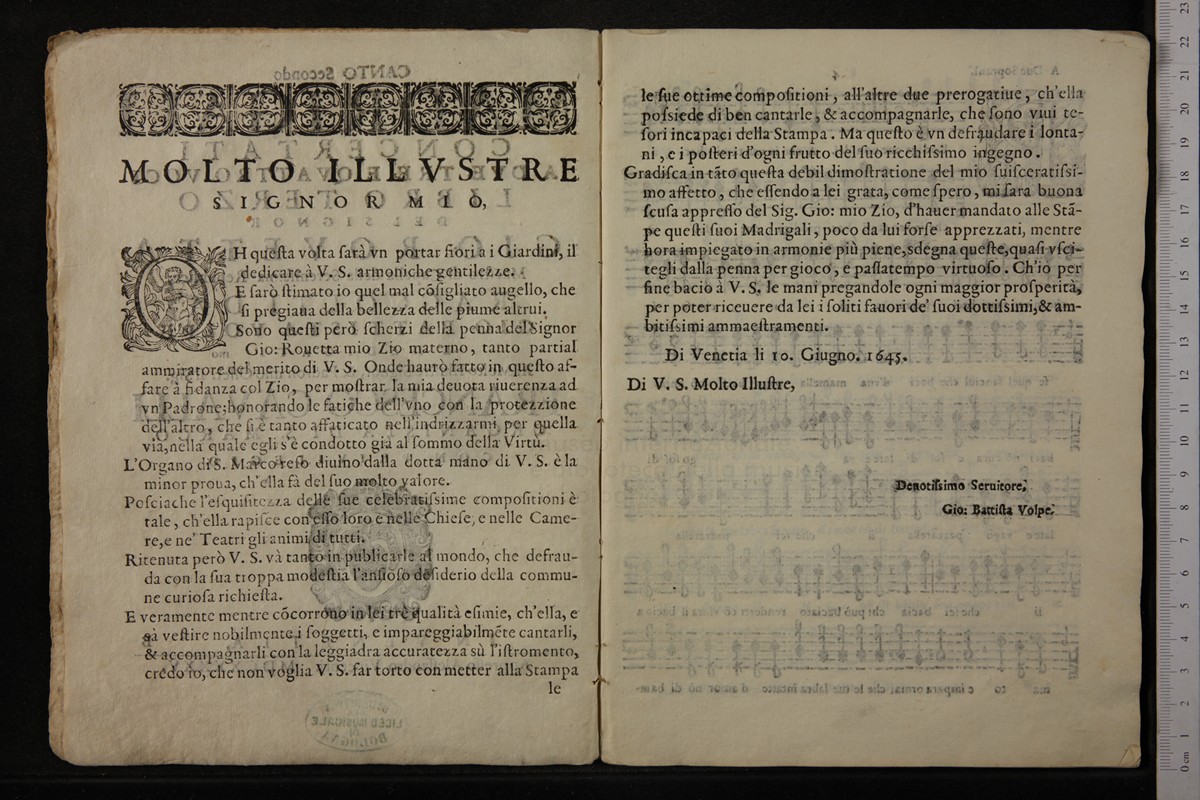 MOLTO ILLVSTRE
SIGNOR MIO,
OH queſta volta ſarà vn portar fiori a i Giardini, il
dedicare à V. S. armoniche gentilezze.
E ſarò ſtimato io quel mal cõſigliato augello, che
ſi pregiaua della bellezza delle piume altrui.
Sono queſti però ſcherzi della penna del Signor
Gio: Rouetta mio Zio materno, tanto partial
ammiratore del merito di V. S. Onde haurò fatto in queſto af-
fare à fidanza col Zio, per moſtrar la mia deuota riuerenza ad
vn Padrone; honorando le fatiche dell'vno con la protezzione
dell'altro, che ſi è tanto affaticato nell'indrizzarmi per quella
via, nella quale egli s'è condotto già al ſommo della Virtù.
L'Organo di S. Marco reſo diuino dalla dotta mano di V. S. è la
minor proua, ch'ella fà del ſuo molto valore.
Poſciache l'eſquiſitezza delle ſue celebratiſsime compoſitioni è
tale, ch'ella rapiſce con eſſo loro e nelle Chieſe, e nelle Came-
re, e ne' Teatri gli animi di tutti.
Ritenuta però V. S. và tanto in publicarle al mondo, che defrau-
da con la ſua troppa modeſtia l'anſioſo deſiderio della commu-
ne curioſa richieſta.
E veramente mentre cõcorrono in lei trè qualità eſimie, ch'ella, e
sà veſtire nobilmente i ſoggetti, e impareggiabilmẽte cantarli,
& accompagnarli con la leggiadra accuratezza sù l'iſtromento,
credo io, che non voglia V. S. far torto con metter alla Stampa
le
le ſue ottime compoſitioni, all'altre due prerogatiue, ch'ella
poſsiede di ben cantarle, & accompagnarle, che ſono viui te-
ſori incapaci della Stampa. Ma queſto è vn defraudare i lonta-
ni, e i poſteri d'ogni frutto del ſuo ricchiſsimo ingegno.
Gradiſca in tãto queſta debil dimoſtratione del mio ſuiſceratiſsi-
mo affetto, che eſſendo a lei grata, come ſpero, mi ſara buona
ſcuſa appreſſo del Sig. Gio: mio Zio, d'hauer mandato alle Stã-
pe queſti ſuoi Madrigali, poco da lui forſe apprezzati, mentre
hora impiegato in armonie più piene, sdegna queſte, quaſi vſci-
tegli dalla penna per gioco, e paſſatempo virtuoſo. Ch'io per
fine bacio à V. S. le mani pregandole ogni maggior proſperità,
per poter riceuere da lei i ſoliti fauori de' ſuoi dottiſsimi, & am-
bitiſsimi ammaeſtramenti.
Di Venetia li 10. Giugno. 1645.
Di V. S. Molto Illuſtre,
Deuotiſſimo Seruitore,
Gio: Battiſta Volpe.